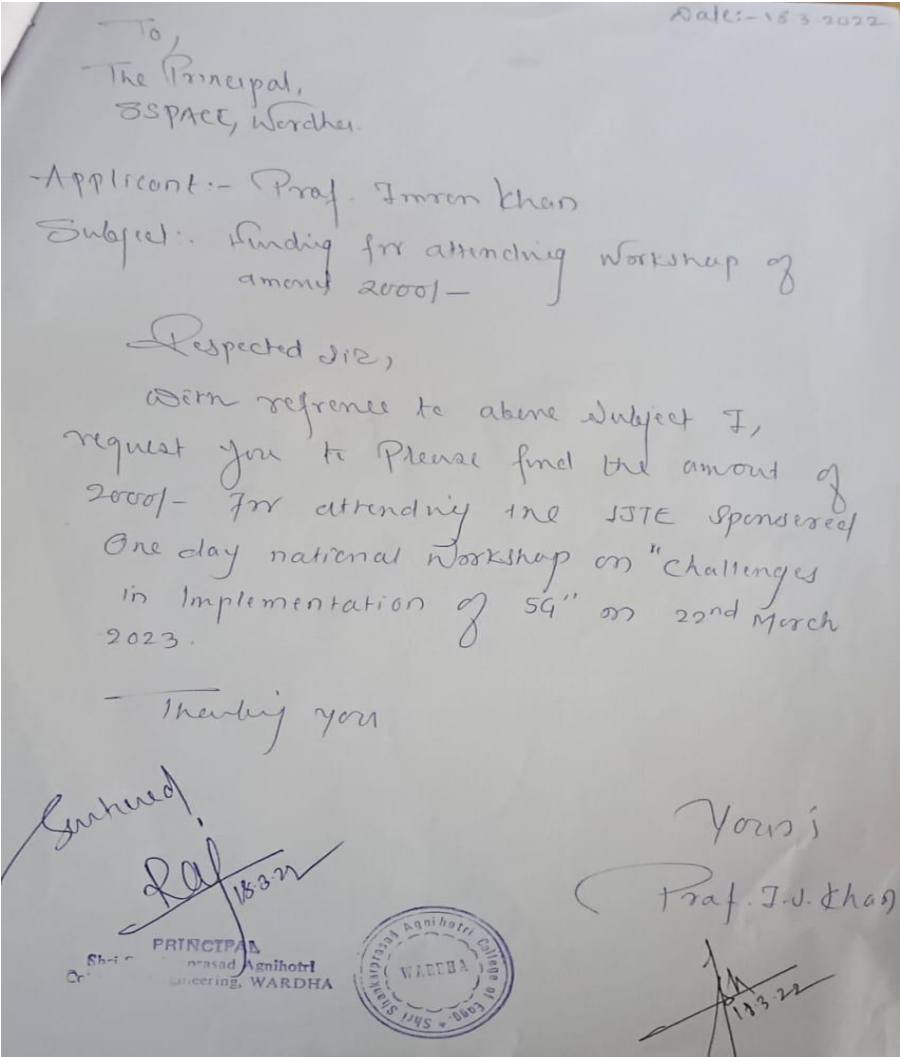 Date:- 18.3.2022
To,
The Principal,
SSPACE, Wardha.
Applicant:- Prof. Imran Khan
Subject:. Funding for attending workshop of
amount 2000/-
Respected Sir,
With refrence to above subject I,
request you to Please find the amout of
2000/- For attending the ISTE Sponsered
One day national Workshop on "Challenges
in Implementation of 5G" on 22nd March
2023.
Thanking you
Yours;
Prof. I.U. Khan
18.3.22
18.3.22
PRINCIPAL
prasad Agnihotri
ineering, WARDHA
Shri Shankarprasad Agnihotri College of Engg.
WARDHA